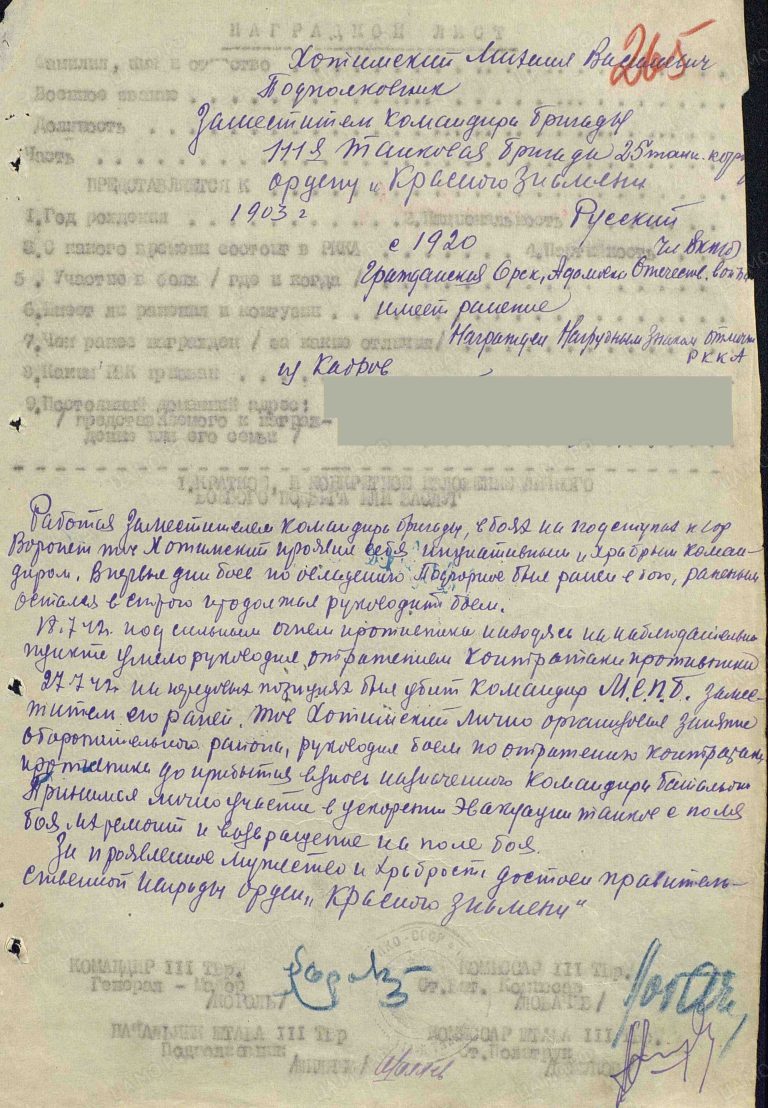 НАГРАДНОЙ ЛИСТ
265
Фамилия, имя и отчество Хотимский Михаил Васильевич
Военное звание Подполковник
Должность Заместителем командира бригады
Часть 111я танковая бригады 25 танк. корп
ПРЕДСТАВЛЯЕТСЯ К ордену „Красного Знамени
1. Год рождения 1903 г 2. Национальность Русский
3. С какого времени состоит в РККА с 1920 4. Партийность чл Вкп(б)
5. Участие в боях / где и когда / Гражданская Орск, Отечеств. война
6. Имеет ли ранения и контузии имеет ранение
7. Чем ранее награжден / за какие отличия / Награжден Нагрудным знаком отличия
РККА
8. Каким РВК призван из Кадров
9. Постоянный домашний адрес:
/ представляемого к награж-
дению или его семьи /
I. КРАТКОЕ, И КОНКРЕТНОЕ ИЗЛОЖЕНИЕ ЛИЧНОГО
БОЕВОГО ПОДВИГА ИЛИ ЗАСЛУГ
Работая Заместителем командира бригады, в боях на подступах к гор
Воронеж тов Хотимский проявил себя инициативным и храбрым коман-
диром. В первые дни боев по овладению Подгорное был ранен в бою, раненым
остался в строю и продолжал руководить боем.
7 42г. под сильным огнем противника находясь на наблюдательно
пункте умело руководил отражением контратаки противника
27 7 42г. на передовых позициях был убит командир М.С.П.Б. заме-
ститель его ранен. тов Хотимский лично организовал занятие
оборонительного района, руководил боем по отражению контратаки
противника до прибытия вновь назначенного командира батальона
Принимал лично участие в ускорении эвакуации танков с поля
боя их ремонт и возвращение на поле боя.
За проявленное мужество и храбрость достоен правитель-
ственной награды орден „Красного Знамени“
КОМАНДИР III ТБР. КОМИССАР III ТБР.
Генерал - Майор Ст.Бат. Комиссар
НАЧАЛЬНИК ШТАБА III ТБР КОМИССАР ШТАБА III ТБР.
Подполковник Ст. Политрук